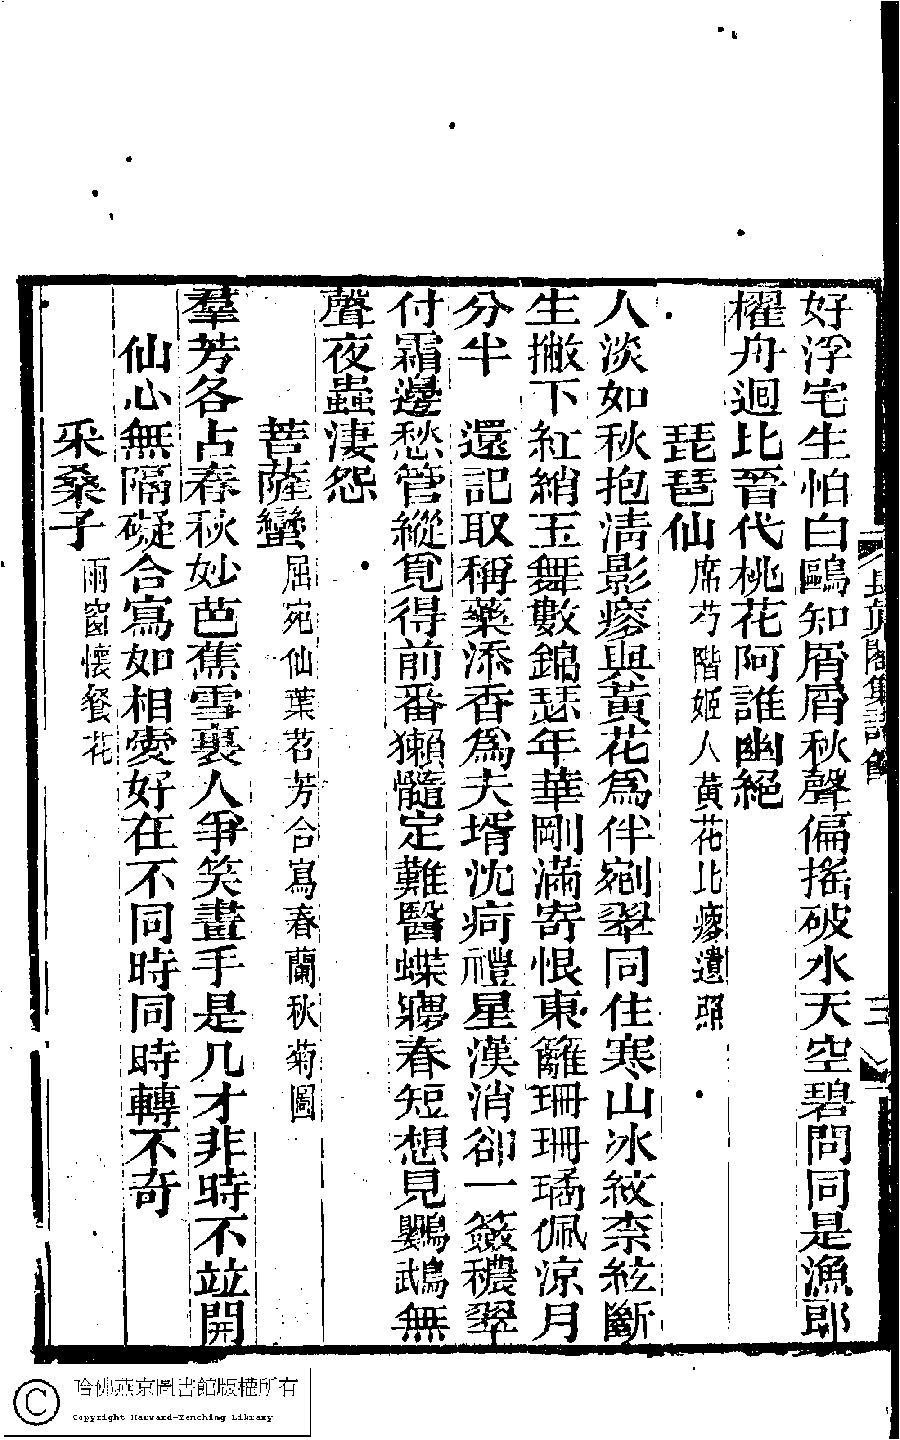 好浮宅生怕白鷗知屑屑秋聲偏搖破水天空碧問同是漁郎
櫂舟迴比晉代桃花阿誰幽絕
琵琶仙 席芍階姬人黃花比瘦遺照
人淡如秋抱淸影瘦與黃花爲伴剜翠同住寒山冰紋柰絃斷
生撇下紅綃玉舞數錦瑟年華剛滿寄恨東籬珊珊璚佩涼月
分半 還記取稱藥添香爲夫壻沈疴禮星漢消卻一簽穠翠
付霜邊愁管縱覓得前番獺髓定難醫蝶㝱春短想見鸚鵡無
聲夜蟲淒怨
菩薩蠻 屈宛仙葉苕芳合寫春蘭秋菊圖
羣芳各占春秋妙芭蕉雪裏人爭笑畫手是凡才非時不竝開
仙心無隔礙合寫如相愛好在不同時同時轉不奇
采桑子 雨窗懷餐花
長眞閣集詩餘
三
哈佛燕京圖書館版權所有
Copyright Harvard-Yenching Library